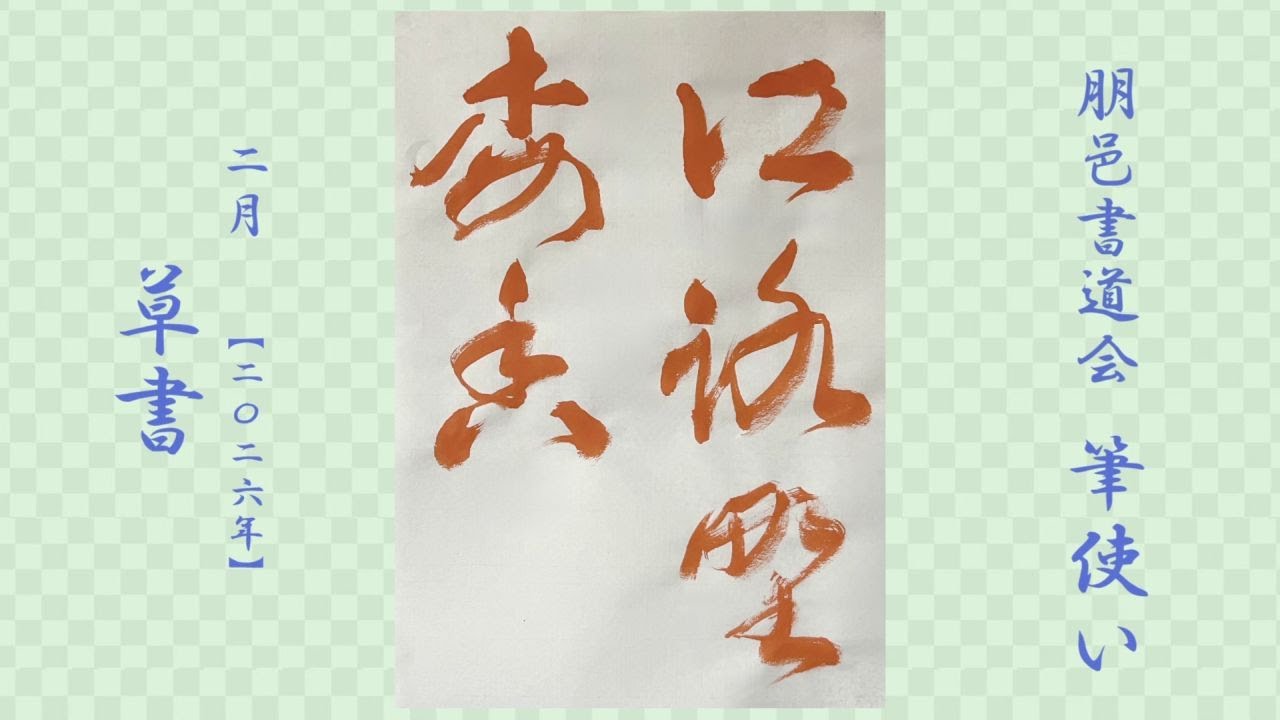 朋邑書道会 筆使い
江路野
梅香
二月 【二〇二六年】
草書